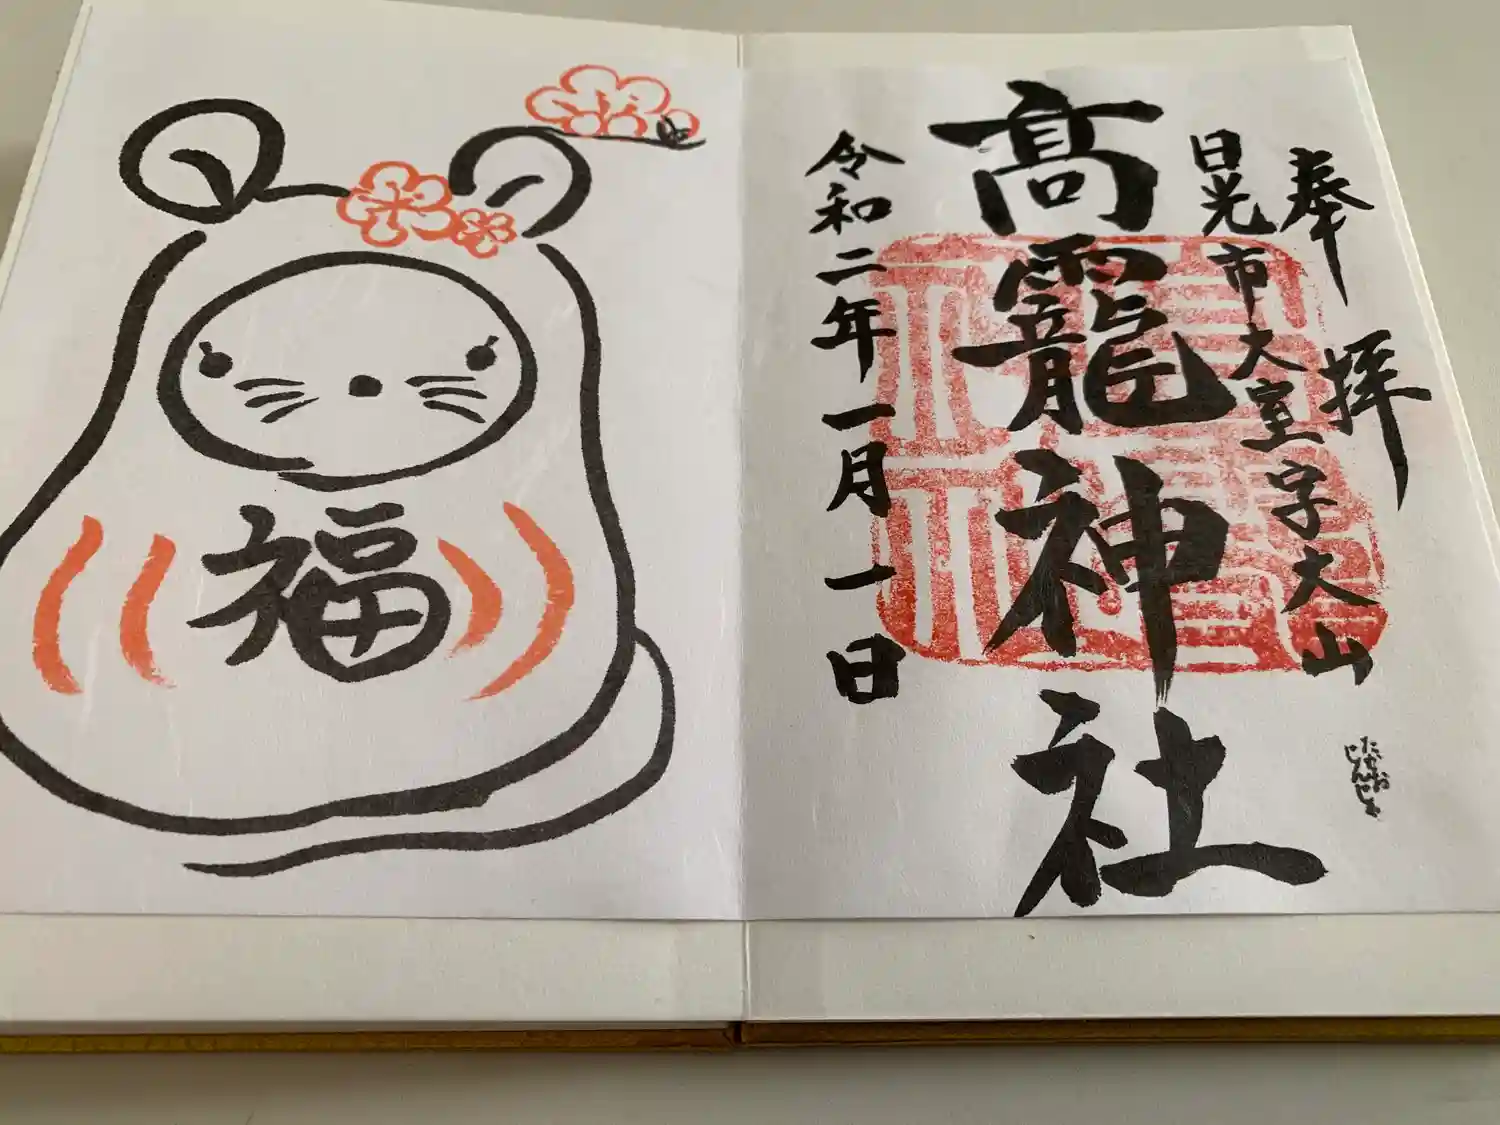 奉拝
日光市大室字大山
髙靇神社
令和二年一月一日
たかお
じんじゃ
福